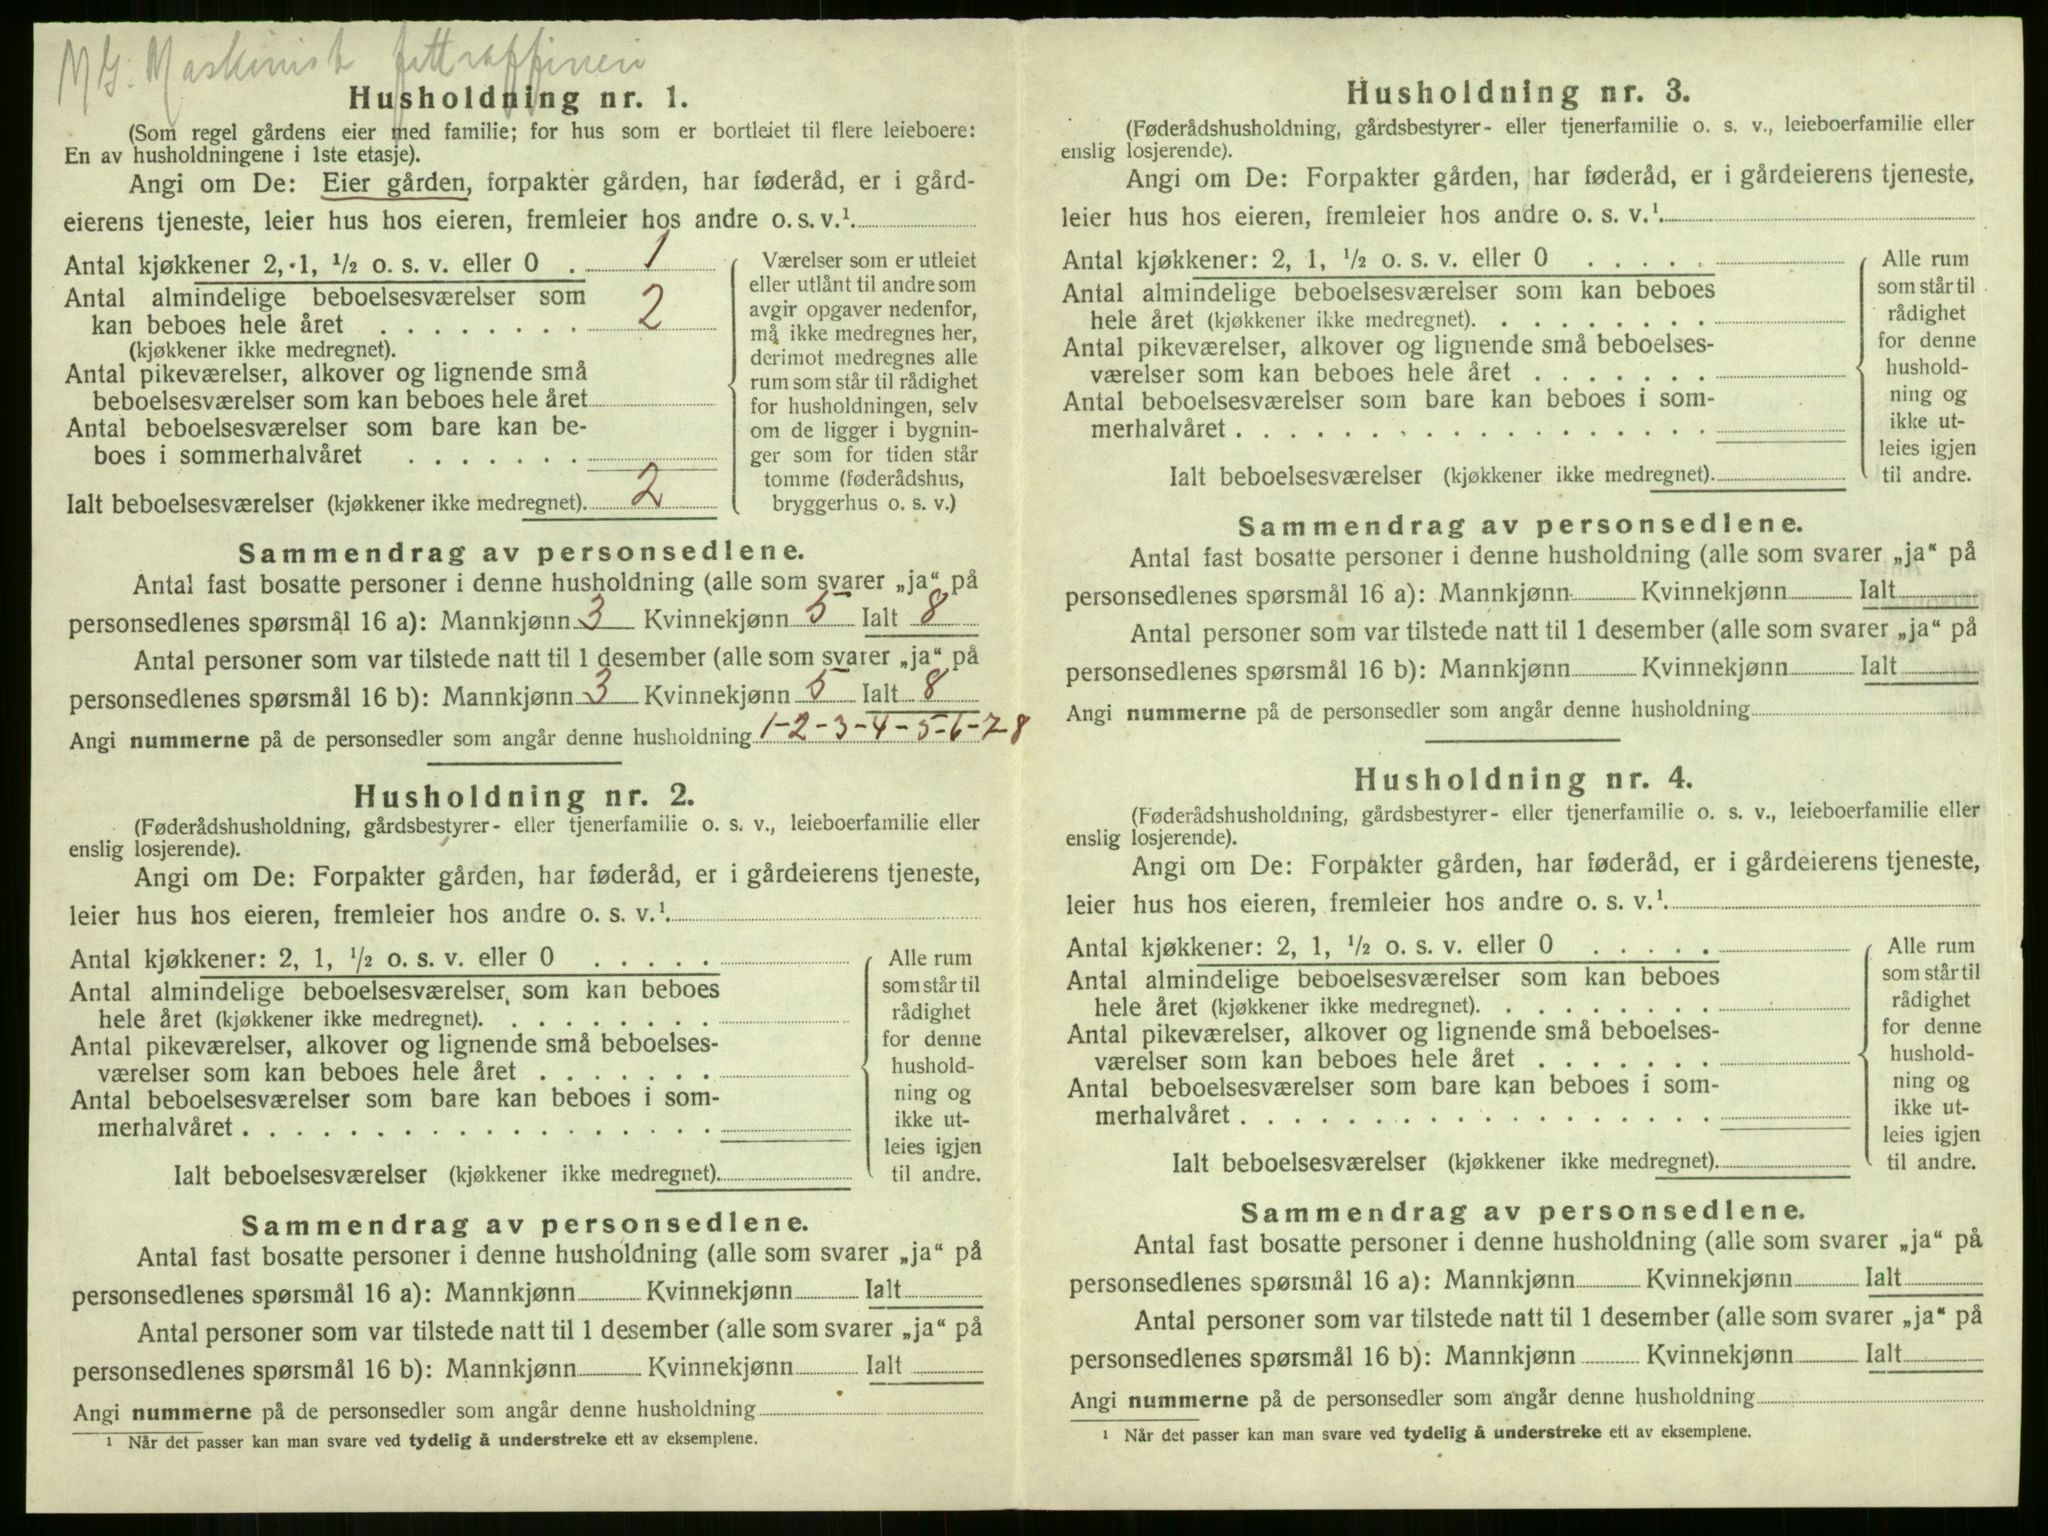 MG. Maskinist fettraffineri
Husholdning nr. 1.
(Som regel gårdens eier med familie; for hus som er bortleiet til flere leieboere:
En av husholdningene i 1ste etasje).
Angi om De: Eier gården, forpakter gården, har føderåd, er i gård-
eierens tjeneste, leier hus hos eieren, fremleier hos andre o. s. v.¹
Antal kjøkkener 2, 1, ½ o. s. v. eller 0 . 1
Antal almindelige beboelsesværelser som
kan beboes hele året . . . . . . . . 2
(kjøkkener ikke medregnet).
Antal pikeværelser, alkover og lignende små
beboelsesværelser som kan beboes hele året
Antal beboelsesværelser som bare kan be-
boes i sommerhalvåret . . . . . . .
Ialt beboelsesværelser (kjøkkener ikke medregnet). 2
Værelser som er utleiet
eller utlånt til andre som
avgir opgaver nedenfor,
må ikke medregnes her,
derimot medregnes alle
rum som står til rådighet
for husholdningen, selv
om de ligger i bygnin-
ger som for tiden står
tomme (føderådshus,
bryggerhus o. s. v.)
Sammendrag av personsedlene.
Antal fast bosatte personer i denne husholdning (alle som svarer „ja“ på
personsedlenes spørsmål 16 a): Mannkjønn 3 Kvinnekjønn 5 Ialt 8
Antal personer som var tilstede natt til 1 desember (alle som svarer „ja“ på
personsedlenes spørsmål 16 b): Mannkjønn 3 Kvinnekjønn 5 Ialt 8
Angi nummerne på de personsedler som angår denne husholdning 1-2-3-4-5-6-7-8
Husholdning nr. 2.
(Føderådshusholdning, gårdsbestyrer- eller tjenerfamilie o. s. v., leieboerfamilie eller
enslig losjerende).
Angi om De: Forpakter gården, har føderåd, er i gårdeierens tjeneste,
leier hus hos eieren, fremleier hos andre o. s. v.¹
Antal kjøkkener: 2, 1, ½ o. s. v. eller 0 . . . . .
Antal almindelige beboelsesværelser som kan beboes
hele året (kjøkkener ikke medregnet). . . . . . . . .
Antal pikeværelser, alkover og lignende små beboelses-
værelser som kan beboes hele året . . . . . . .
Antal beboelsesværelser som bare kan beboes i som-
merhalvåret . . . . . . . . . . . . . . . . . .
Ialt beboelsesværelser (kjøkkener ikke medregnet).
Alle rum
som står til
rådighet
for denne
hushold-
ning og
ikke ut-
leies igjen
til andre.
Sammendrag av personsedlene.
Antal fast bosatte personer i denne husholdning (alle som svarer „ja“ på
personsedlenes spørsmål 16 a): Mannkjønn Kvinnekjønn Ialt
Antal personer som var tilstede natt til 1 desember (alle som svarer „ja“ på
personsedlenes spørsmål 16 b): Mannkjønn Kvinnekjønn Ialt
Angi nummerne på de personsedler som angår denne husholdning
¹ Når det passer kan man svare ved tydelig å understreke ett av eksemplene.
Husholdning nr. 3.
(Føderådshusholdning, gårdsbestyrer- eller tjenerfamilie o. s. v., leieboerfamilie eller
enslig losjerende).
Angi om De: Forpakter gården, har føderåd, er i gårdeierens tjeneste,
leier hus hos eieren, fremleier hos andre o. s. v.¹
Antal kjøkkener: 2, 1, ½ o. s. v. eller 0 . . . . .
Antal almindelige beboelsesværelser som kan beboes
hele året (kjøkkener ikke medregnet). . . . . . . . .
Antal pikeværelser, alkover og lignende små beboelses-
værelser som kan beboes hele året . . . . . . .
Antal beboelsesværelser som bare kan beboes i som-
merhalvåret . . . . . . . . . . . . . . . . . .
Ialt beboelsesværelser (kjøkkener ikke medregnet).
Alle rum
som står til
rådighet
for denne
hushold-
ning og
ikke ut-
leies igjen
til andre.
Sammendrag av personsedlene.
Antal fast bosatte personer i denne husholdning (alle som svarer „ja“ på
personsedlenes spørsmål 16 a): Mannkjønn Kvinnekjønn Ialt
Antal personer som var tilstede natt til 1 desember (alle som svarer „ja“ på
personsedlenes spørsmål 16 b): Mannkjønn Kvinnekjønn Ialt
Angi nummerne på de personsedler som angår denne husholdning
Husholdning nr. 4.
(Føderådshusholdning, gårdsbestyrer- eller tjenerfamilie o. s. v., leieboerfamilie eller
enslig losjerende).
Angi om De: Forpakter gården, har føderåd, er i gårdeierens tjeneste,
leier hus hos eieren, fremleier hos andre o. s. v.¹
Antal kjøkkener: 2, 1, ½ o. s. v. eller 0 . . . . .
Antal almindelige beboelsesværelser som kan beboes
hele året (kjøkkener ikke medregnet). . . . . . . . .
Antal pikeværelser, alkover og lignende små beboelses-
værelser som kan beboes hele året . . . . . . .
Antal beboelsesværelser som bare kan beboes i som-
merhalvåret . . . . . . . . . . . . . . . . . .
Ialt beboelsesværelser (kjøkkener ikke medregnet).
Alle rum
som står til
rådighet
for denne
hushold-
ning og
ikke ut-
leies igjen
til andre.
Sammendrag av personsedlene.
Antal fast bosatte personer i denne husholdning (alle som svarer „ja“ på
personsedlenes spørsmål 16 a): Mannkjønn Kvinnekjønn Ialt
Antal personer som var tilstede natt til 1 desember (alle som svarer „ja“ på
personsedlenes spørsmål 16 b): Mannkjønn Kvinnekjønn Ialt
Angi nummerne på de personsedler som angår denne husholdning
¹ Når det passer kan man svare ved tydelig å understreke ett av eksemplene.